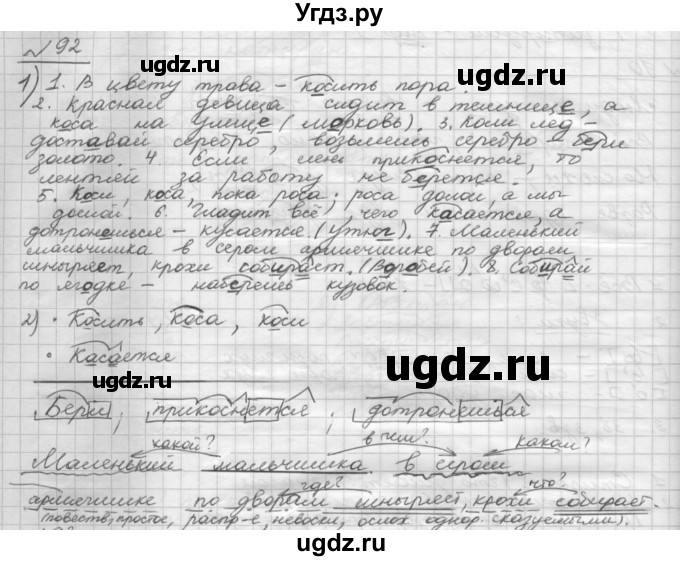 Угдз.ру
№ 92
1) 1. В цвету трава – косить пора.
2. Красная девица сидит в темнице, а
коса на улице (морковь). 3. Коли лёд –
доставай серебро, возьмёшь серебро – бери
золото. 4. Если лень прикоснётся, то
лентяй за работу не берётся.
5. Коси, коса, пока роса; роса долой, а мы
домой. 6. Гладит всё, чего касается, а
дотронешься – кусается (утюг). 7. Маленький
мальчишка в сером армячишке по дворам
шныряет, крохи собирает. (Воробей). 8. Собирай
по ягодке – наберёшь кузовок.
2) • Косить, коса, коси
• Касается
Бери, прикоснется, дотронешься
какой? в чём? каком?
Маленький мальчишка в сером
где? что?
армячишке по дворам шныряет, крохи собирает.
(повеств, простое, распр-е, невоскл, ослож однор сказуемыми).
ugdz.ru ugdz.ru
ugdz.ru
ugdz.ru ugdz.ru
ugdz.ru
ugdz.ru ugdz.ru
ugdz.ru